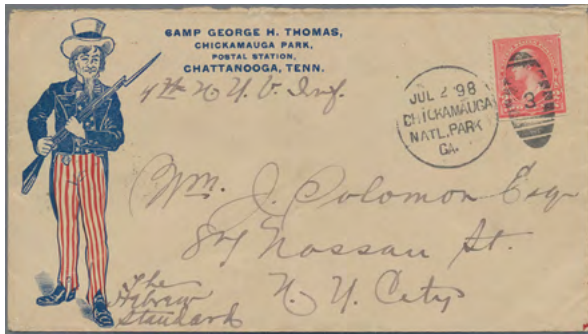 CAMP GEORGE H. THOMAS,
CHICKAMAUGA PARK,
POSTAL STATION,
CHATTANOOGA, TENN.
N. Y. V. Inf.
JUL 2 98
CHICKAMAUGA
NATL. PARK
GA.
3
Wm. J. Solomon Esq
Nassau St.
N. Y. City
The
Hebrew
Standard